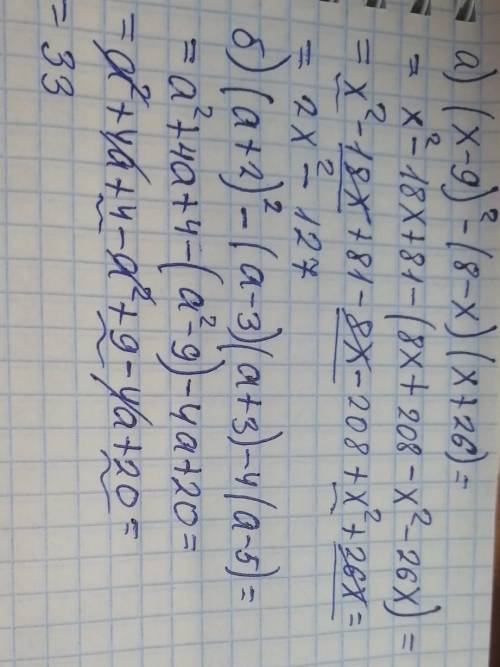 а) (x-9)² - (8-x)(x+26) =
= x² - 18x + 81 - (8x + 208 - x² - 26x) =
= x² - 18x + 81 - 8x - 208 + x² + 26x =
= 2x² - 127
б) (a+2)² - (a-3)(a+3) - 4(a-5) =
= a² + 4a + 4 - (a² - 9) - 4a + 20 =
= a² + 4a + 4 - a² + 9 - 4a + 20 =
= 33